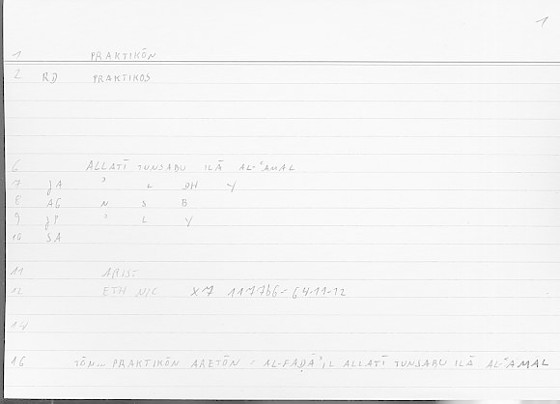 1
1 PRAKTIKŌN
2 RD PRAKTIKOS
6 ALLATĪ TUNSABU ILĀ AL-ʿAMAL
7 JA ʾ L DH Y
8 AG N S B
9 JP ʾ L Y
10 SA
11 ARIS:
12 ETH NIC X7 1177b6 = 64.11-12
14
16 TŌN... PRAKTIKŌN ARETŌN = AL-FAḌĀʾIL ALLATĪ TUNSABU ILĀ AL-ʿAMAL